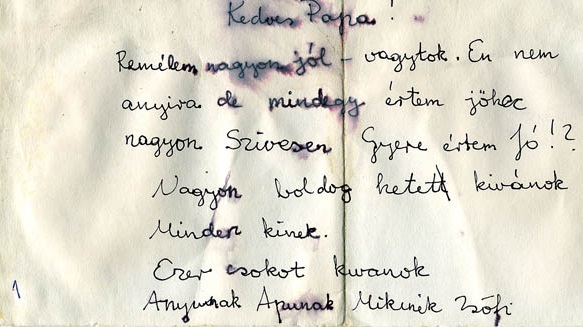 Kedves Papa!
Remélem nagyon jól - vagytok. Én nem
anyira de mindegy értem jöhec
nagyon Szivesen Gyere értem Jó!?
Nagyon boldog hetett kivánok
Minden kinek.
Ezer csokot kivanok
Anyunak Apunak Mikinek Zsófi
1